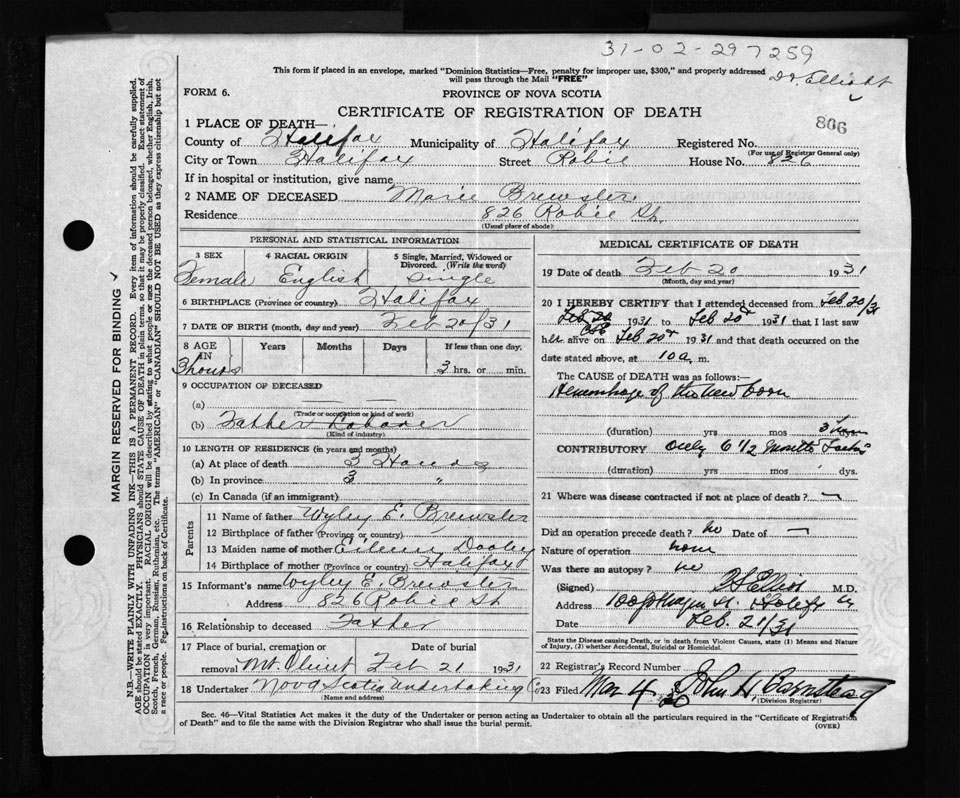 31-02-297259
This form if placed in an envelope, marked "Dominion Statistics—Free, penalty for improper use, $300," and properly addressed
will pass through the Mail "FREE"
Dr. Elliott
FORM 6.
PROVINCE OF NOVA SCOTIA
CERTIFICATE OF REGISTRATION OF DEATH
806
1 PLACE OF DEATH—
County of Halifax Municipality of Halifax Registered No.
(For use of Registrar General only)
City or Town Halifax Street Robie House No. 826
If in hospital or institution, give name
2 NAME OF DECEASED Marie Brewster
Residence 826 Robie St.
(Usual place of abode)
PERSONAL AND STATISTICAL INFORMATION
3 SEX 4 RACIAL ORIGIN 5 Single, Married, Widowed or
Divorced. (Write the word)
Female English Single
6 BIRTHPLACE (Province or country) Halifax
7 DATE OF BIRTH (month, day and year) Feb 20/31
8 AGE IN Years Months Days If less than one day,
3 hours 3 hrs. or min.
9 OCCUPATION OF DECEASED
(a) — —
(Trade or occupation or kind of work)
(b) Father Laborer
(Kind of industry)
10 LENGTH OF RESIDENCE (in years and months)
(a) At place of death 3 Hours
(b) In province 3 "
(c) In Canada (if an immigrant)
Parents
11 Name of father Wyley E. Brewster
12 Birthplace of father (Province or country)
13 Maiden name of mother Eileen Dooley
14 Birthplace of mother (Province or country) Halifax
15 Informant's name Wyley E. Brewster
Address 826 Robie St
16 Relationship to deceased Father
17 Place of burial, cremation or Date of burial
removal Mt. Olivet Feb 21 1931
18 Undertaker Nova Scotia Undertaking Co
(Name and address)
MEDICAL CERTIFICATE OF DEATH
19 Date of death Feb 20 1931
(Month, day and year)
20 I HEREBY CERTIFY that I attended deceased from Feb 20/31
Feb 20 1931 to Feb 20 1931 that I last saw
h alive on Feb 20 1931 and that death occurred on the
date stated above, at 10 a. m.
The CAUSE of DEATH was as follows:—
Hemorrhage of the new born
(duration) yrs mos 3
CONTRIBUTORY Only 6 1/2 months
(duration) yrs mos dys.
21 Where was disease contracted if not at place of death? —
Did an operation precede death? no Date of —
Nature of operation none
Was there an autopsy? no
(Signed) Elliott M.D.
Address
Date Feb. 21/31
State the Disease causing Death, or in death from Violent Causes, state (1) Means and Nature
of Injury, (2) whether Accidental, Suicidal or Homicidal.
22 Registrar's Record Number
23 Filed Mar 4 John H. Barnstead
(Division Registrar)
Sec. 46—Vital Statistics Act makes it the duty of the Undertaker or person acting as Undertaker to obtain all the particulars required in the "Certificate of Registration
of Death" and to file the same with the Division Registrar who shall issue the burial permit.
(OVER)
MARGIN RESERVED FOR BINDING
N.B.—WRITE PLAINLY WITH UNFADING INK—THIS IS A PERMANENT RECORD. Every item of information should be carefully supplied.
AGE should be stated EXACTLY. PHYSICIANS should STATE CAUSE OF DEATH in plain terms, so that it may be properly classified. Exact statement of
OCCUPATION is very important. RACIAL ORIGIN will be described by stating to what people or race the deceased person belonged, whether English, Irish,
Scotch, French, German, Russian, Ruthenian, etc. The terms "AMERICAN" or "CANADIAN" SHOULD NOT BE USED as they express citizenship but not
a race or people. See instructions on back of Certificate.